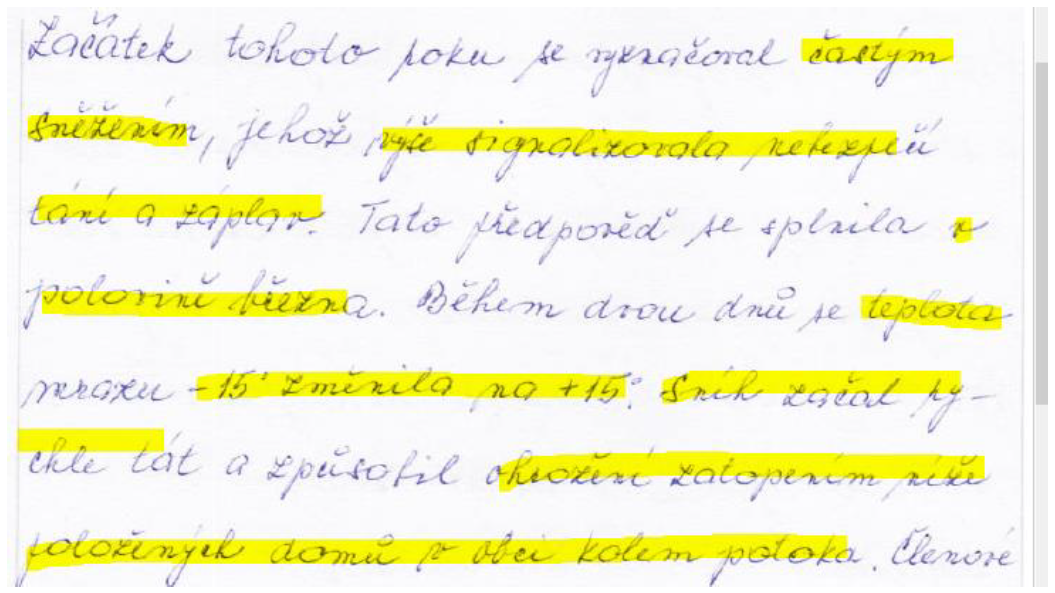 Začátek tohoto roku se vyznačoval častým
sněžením, jehož výše signalizovala nebezpečí
tání a záplav. Tato předpověď se splnila v
polovině března. Během dvou dnů se teplota
mrazu -15° změnila na +15°. Sníh začal ry-
chle tát a způsobil ohrožení zatopením níže
položených domů v obci kolem potoka. Členové